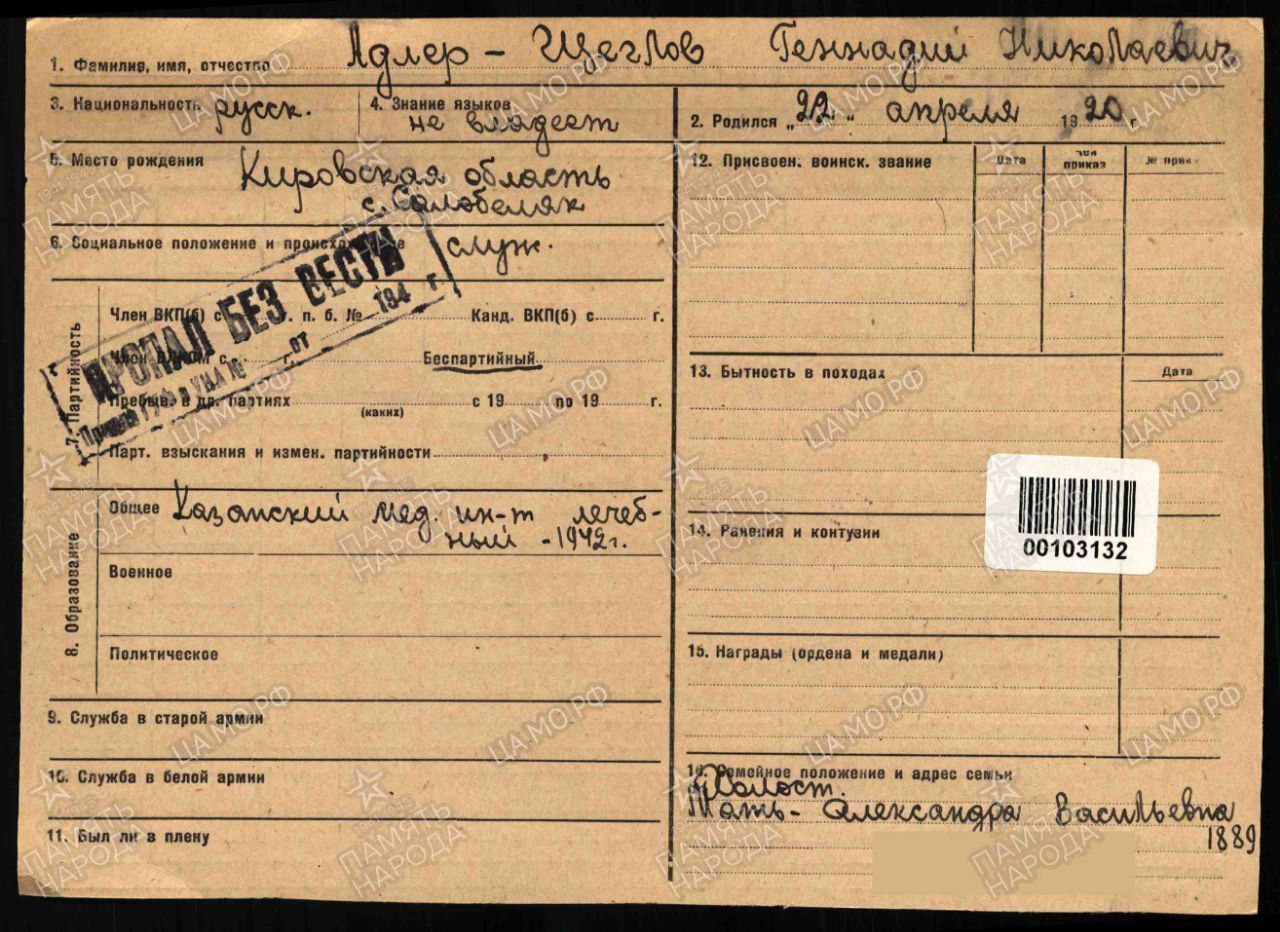 1. Фамилия, имя, отчество Адлер - Щеглов Геннадий Николаевич
3. Национальность русск.
4. Знание языков не владеет
2. Родился „22“ апреля 1920 г.
5. Место рождения Кировская область
с. Салобеляк
6. Социальное положение и происхождение служ.
ПРОПАЛ БЕЗ ВЕСТИ
от 194 г.
7. Партийность
Член ВКП(б) с г. п. б. №
Канд. ВКП(б) с г.
Член ВЛКСМ с г.
Беспартийный
Пребыв. в др. партиях с 19 по 19 г.
(каких)
Парт. взыскания и измен. партийности
8. Образование
Общее Казанский мед. ин-т лечеб-
ный - 1942 г.
Военное
Политическое
9. Служба в старой армии
10. Служба в белой армии
11. Был ли в плену
12. Присвоен. воинск. звание
Дата
Чей приказ
№ прик.
13. Бытность в походах
Дата
14. Ранения и контузии
00103132
15. Награды (ордена и медали)
16. Семейное положение и адрес семьи
Холост.
Мать - Александра Васильевна
1889
ПАМЯТЬ НАРОДА
ЦАМО.РФ